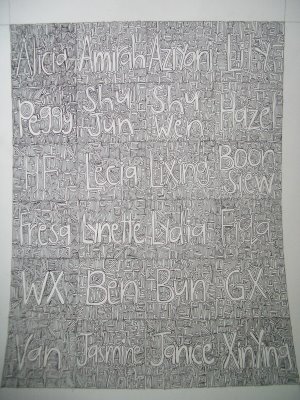 Alicia Amirah Aziyan Lily
Peggy Shu Jun Shu Wen Hazel
HF Lecia Lixing Boon Siew
Fresa Lynette Lydia
WX Ben Bun GX
Van Jasmine Janice XinYing